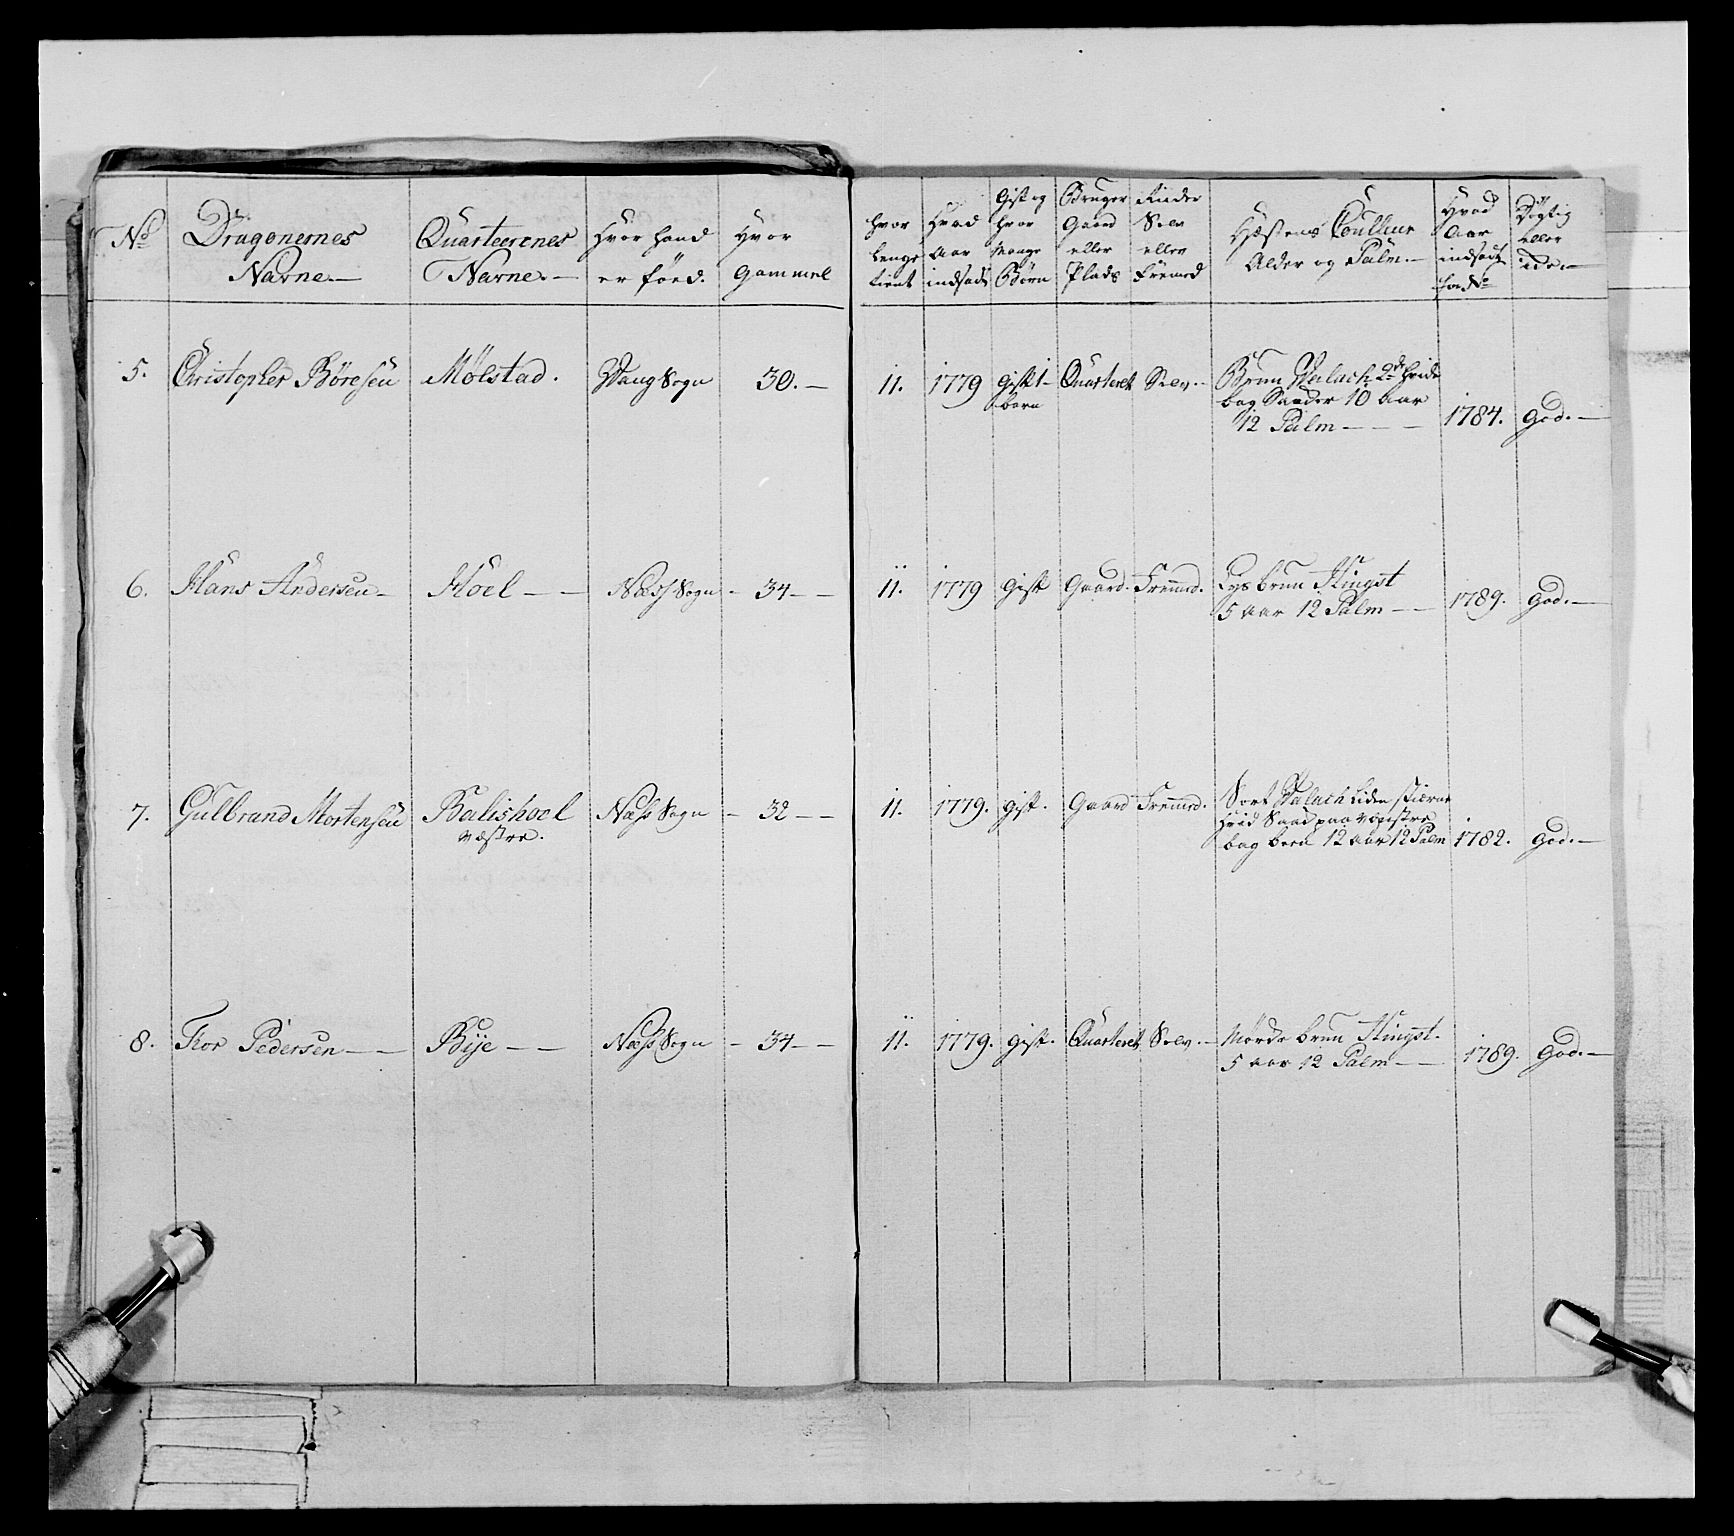 No
Dragonernes
Navne.—
Quarteerenes
Navne.—
Hvor hand
er föed.
Hvor
Gammel
hvor
lenge
tient
Hvad
Aar
indsadt
Gift og
hvor
Mange
Börn
Bruger
Gaard
eller
Plads
Rider
Selv
eller
Fremed
Hæstens Coulleur
Alder og Palm.—
Hvad
Aar
indsadt
for No
Dögtig
eller
ide.—
5. Christopher Böresen Mölstad. Wang Sogn 30.— 11. 1779 Gift 1— Quarteret Selv.— Brun Valach 2de hvide
barn bag Saader 10 Aar
12 Palm — — — 1784. God.—
6. Hans Andersen— Höel — — Næss Sogn — 34 — — 11. 1779 Gift Gaard. Fremed. Lys brun Hingst
5 Aar 12 Palm — — 1789. God.—
7. Gulbrand Mortensen Balishoel Næss Sogn — 32 — — 11. 1779. Gift. Gaard Fremed. Sort Valach Liden stierne
væstre. hvid Saad paa venstre
bag been 12 Aar 12 Palm 1782. God.—
8. Tior Pedersen — — Bije — — Næss Sogn — 34 — — 11. 1779. Gift. Quarteret Selv.— Mörke brun Hingst.
5 Aar 12 Palm — — 1789. God.—